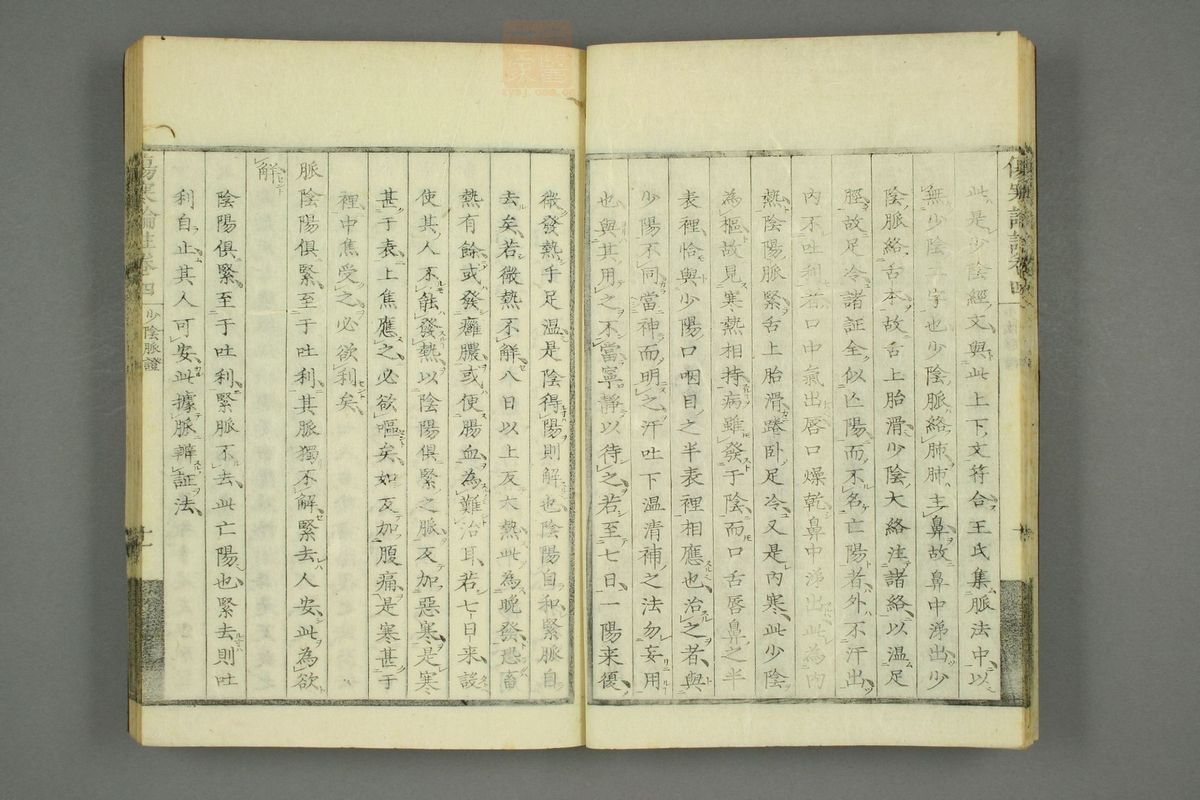 此是少陰經文與此上下文符合王氏集脈法中以
無少陰二字也少陰脈絡肺肺主鼻故鼻中涕出少
陰脈絡舌本故舌上胎滑少陰大絡注諸絡以温足
脛故足冷諸証全似亾陽而不名亡陽者外不汗出
内不吐利茲口中氣出唇口燥乾鼻中涕出此為内
熱陰陽脈緊舌上胎滑踡卧足冷又是内寒此少陰
為樞故見寒熱相持病雖發于陰而口舌唇鼻之半
表裡恰與少陽口咽目之半表裡相應也治之者與
少陽不同當神而明之汗吐下温清補之法勿妄用
也與其用之不當寧靜以待之若至七日一陽来復
微發熱手足温是陰得陽則解也陰陽自和緊脈自
去矣若微熱不解八日以上反大熱此為晩發恐畜
熱有餘或發癰膿或便腸血為難治耳若七日来談
使其人不能發熱以陰陽俱緊之脈反加惡寒是寒
甚于表上焦應之必欲嘔矣如反加腹痛是寒甚于
裡中焦受之必欲利矣
脈陰陽俱緊至于吐利其脈獨不解緊去人安此為欲
解
陰陽俱緊至于吐利緊脈不去此亡陽也緊去則吐
利自止其人可安此據脈辨証法
傷寒論註卷四
少陰脈證
十一
傷寒論註卷四
十